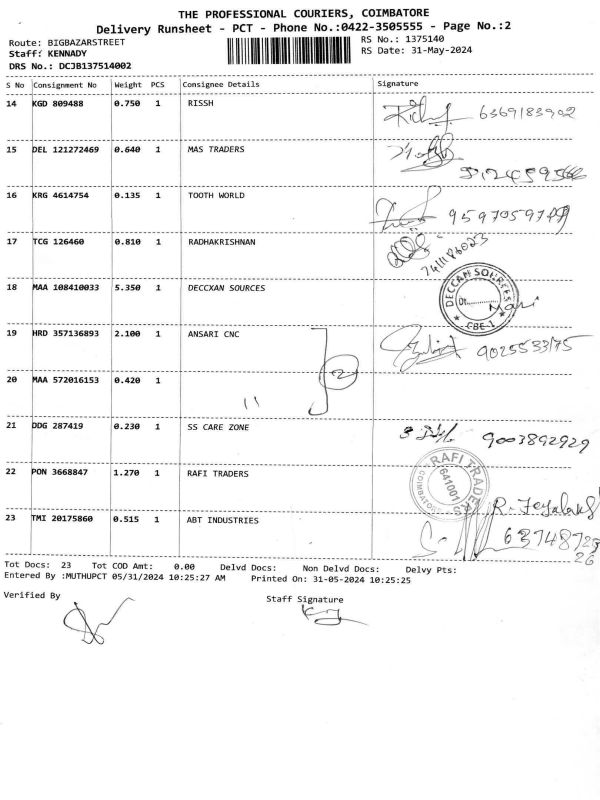 THE PROFESSIONAL COURIERS, COIMBATORE
Delivery Runsheet - PCT - Phone No.:0422-3505555 - Page No.:2
Route: BIGBAZARSTREET
RS No.: 1375140
Staff: KENNADY
RS Date: 31-May-2024
DRS No.: DCJB137514002
S No Consignment No Weight PCS Consignee Details Signature
14 KGD 809488 0.750 1 RISSH 6369183902
15 DEL 121272469 0.640 1 MAS TRADERS
16 KRG 4614754 0.135 1 TOOTH WORLD
17 TCG 126460 0.810 1 RADHAKRISHNAN
7411186023
18 MAA 108410033 5.350 1 DECCXAN SOURCES
DECCAN SOURCES
Dt.
CBE-1
Mani
19 HRD 357136893 2.100 1 ANSARI CNC
2
20 MAA 572016153 0.420 1 "
21 DDG 287419 0.230 1 SS CARE ZONE 9003892929
22 PON 3668847 1.270 1 RAFI TRADERS
RAFI TRADERS
641001
COIMBATORE
23 TMI 20175860 0.515 1 ABT INDUSTRIES
Tot Docs: 23 Tot COD Amt: 0.00 Delvd Docs: Non Delvd Docs: Delvy Pts:
Entered By :MUTHUPCT 05/31/2024 10:25:27 AM Printed On: 31-05-2024 10:25:25
Verified By
Staff Signature